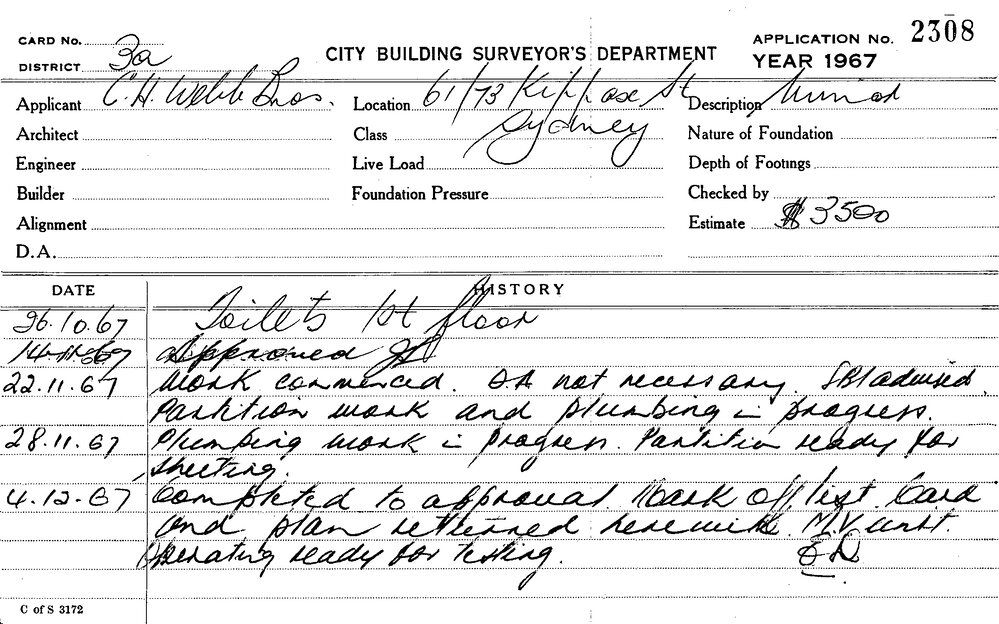 CARD No.
DISTRICT 3a
CITY BUILDING SURVEYOR'S DEPARTMENT
APPLICATION No. 2308
YEAR 1967
Applicant C.H. Webb Bros. Location 61/73 Kippax St Description Minor
Architect Class Sydney Nature of Foundation
Engineer Live Load Depth of Footings
Builder Foundation Pressure Checked by
Alignment Estimate $ 3500
D.A.
DATE HISTORY
26.10.67 Toilets 1st floor
14.11.67 Approved
22.11.67 Work commenced. DA not necessary. advised.
Partition work and plumbing in progress.
28.11.67 Plumbing work in progress. Partition ready for
sheeting.
4.12.67 Completed to approval. Mark off list. Card
and plan returned herewith. M.V. unit
Operating ready for testing.
C of S 3172